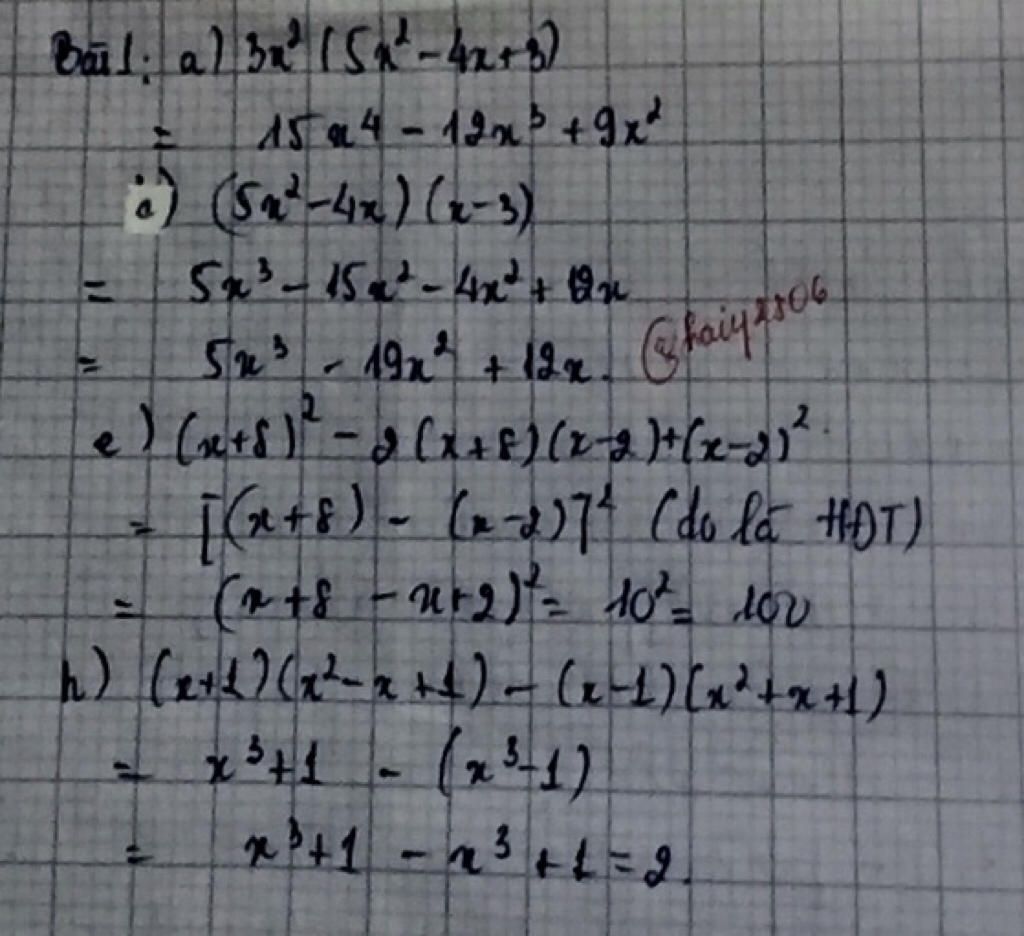 Bài 1: a) 3x² (5x² - 4x + 3)
= 15x⁴ - 12x³ + 9x²
c) (5x² - 4x) (x - 3)
= 5x³ - 15x² - 4x² + 12x
= 5x³ - 19x² + 12x.
@haiy2806
e) (x+8)² - 2 (x+8) (x-2) + (x-2)²
= [(x+8) - (x-2)]² (do là HĐT)
= (x+8 - x+2)² = 10² = 100
h) (x+1) (x² - x + 1) - (x-1) (x² + x + 1)
= x³ + 1 - (x³ - 1)
= x³ + 1 - x³ + 1 = 2.